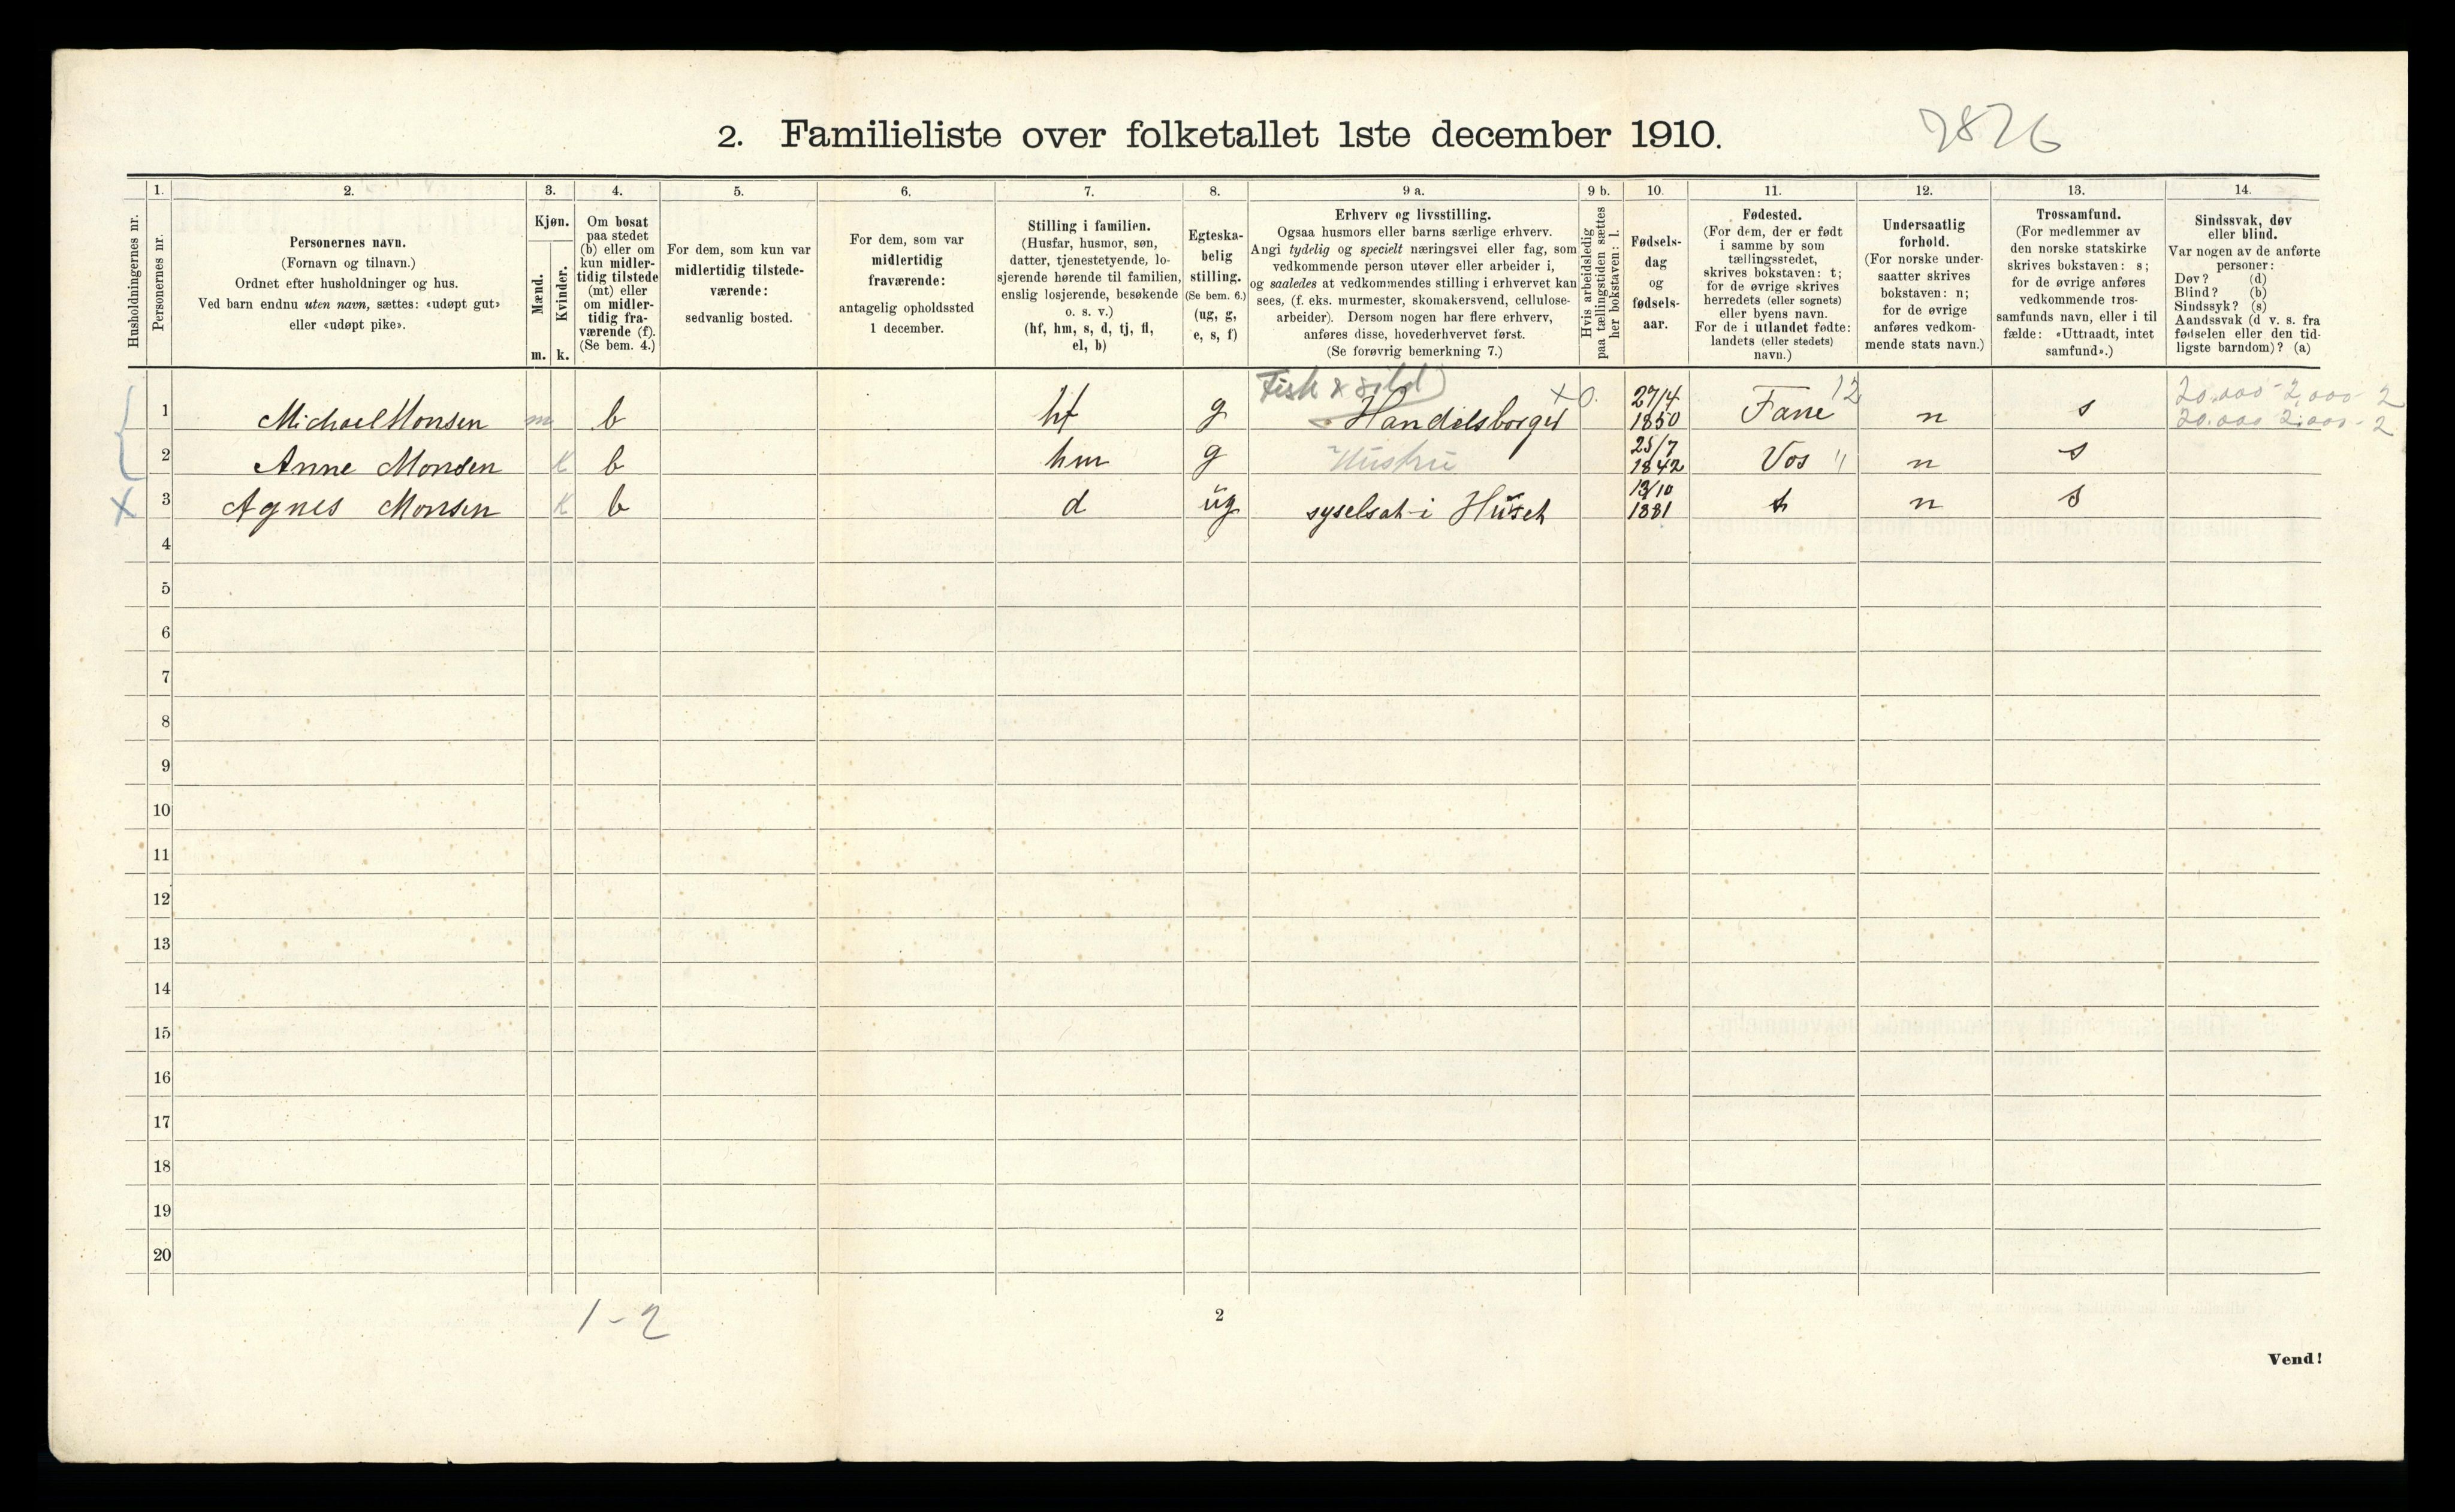 2. Familieliste over folketallet 1ste december 1910.
7826
Husholdningernes nr.
1.
Personernes nr.
2.
Personernes navn.
(Fornavn og tilnavn.)
Ordnet efter husholdninger og hus.
Ved barn endnu uten navn, sættes: «udøpt gut»
eller «udøpt pike».
3.
Kjøn.
Mænd.
Kvinder.
m. k.
4.
Om bosat
paa stedet
(b) eller om
kun midler-
tidig tilstede
(mt) eller
om midler-
tidig fra-
værende (f).
(Se bem. 4.)
5.
For dem, som kun var
midlertidig tilstede-
værende:
sedvanlig bosted.
6.
For dem, som var
midlertidig
fraværende:
antagelig opholdssted
1 december.
7.
Stilling i familien.
(Husfar, husmor, søn,
datter, tjenestetyende, lo-
sjerende hørende til familien,
enslig losjerende, besøkende
o. s. v.)
(hf, hm, s, d, tj, fl,
el, b)
8.
Egteska-
belig
stilling.
(Se bem. 6.)
(ug, g,
e, s, f)
9 a.
Erhverv og livsstilling.
Ogsaa husmors eller barns særlige erhverv.
Angi tydelig og specielt næringsvei eller fag, som
vedkommende person utøver eller arbeider i,
og saaledes at vedkommendes stilling i erhvervet kan
sees, (f. eks. murmester, skomakersvend, cellulose-
arbeider). Dersom nogen har flere erhverv,
anføres disse, hovederhvervet først.
(Se forøvrig bemerkning 7.)
9 b.
Hvis arbeidsledig
paa tællingstiden sættes
her bokstaven: l.
10.
Fødsels-
dag
og
fødsels-
aar.
11.
Fødested.
(For dem, der er født
i samme by som
tællingsstedet,
skrives bokstaven: t;
for de øvrige skrives
herredets (eller sognets)
eller byens navn.
For de i utlandet fødte:
landets (eller stedets)
navn.)
12.
Undersaatlig
forhold.
(For norske under-
saatter skrives
bokstaven: n;
for de øvrige
anføres vedkom-
mende stats navn.)
13.
Trossamfund.
(For medlemmer av
den norske statskirke
skrives bokstaven: s;
for de øvrige anføres
vedkommende tros-
samfunds navn, eller i til
fælde: «Uttraadt, intet
samfund».)
14.
Sindssvak, døv
eller blind.
Var nogen av de anførte
personer:
Døv? (d)
Blind? (b)
Sindssyk? (s)
Aandssvak (d v. s. fra
fødselen eller den tid-
ligste barndom)? (a)
Fisk & sild
1 Michael Monsen m b hf g Handelsborger x 0. 27/4 1850 Fane 12 n s
20.000 - 2,000 2
20.000 2.000 - 2
2 Anne Monsen k b hm g Hustru 25/7 1842 Vos " n s
x 3 Agnes Monsen k b d ug syselsat i Huset 13/10 1881 t n s
4
5
6
7
8
9
10
11
12
13
14
15
16
17
18
19
20
1-2
2
Vend!